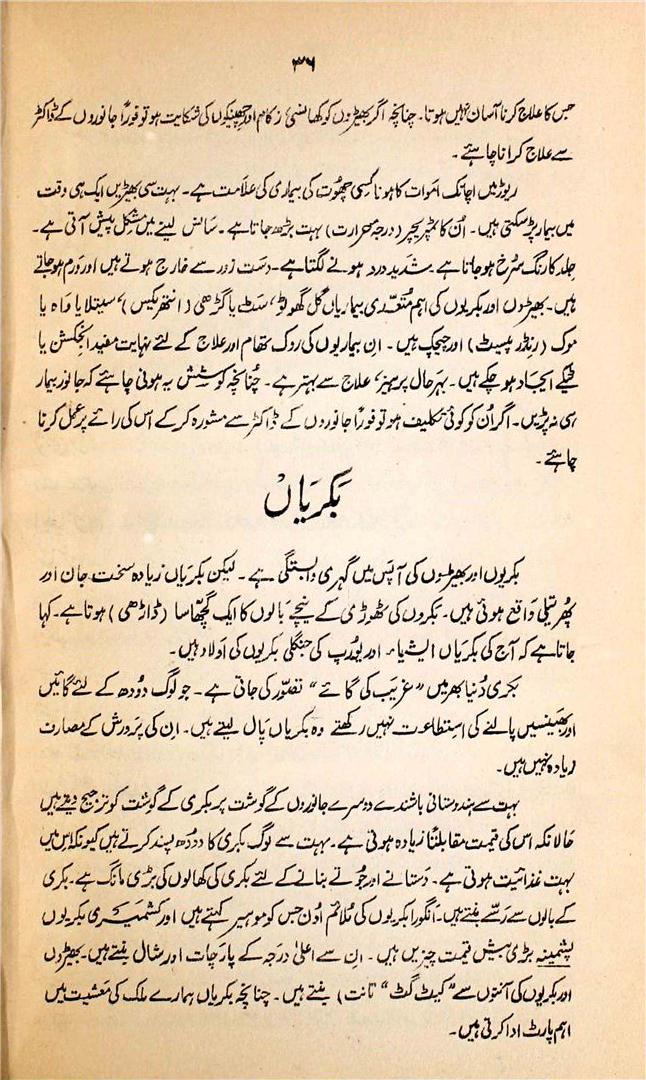 ۳۶
جس کا علاج کرنا آسان نہیں ہوتا۔ چنانچہ اگر بھیڑوں کو کھانسی، زکام اور چھینکوں کی شکایت ہو تو فوراً جانوروں کے ڈاکٹر
سے علاج کرانا چاہئے۔
ریوڑ میں اچانک اموات کا ہونا کسی چھوت کی بیماری کی علامت ہے۔ بہت سی بھیڑیں ایک ہی وقت
میں بیمار پڑ سکتی ہیں۔ اُن کا ٹمپریچر (درجۂ حرارت) بہت بڑھ جاتا ہے۔ سانس لینے میں مشکل پیش آتی ہے۔
جلد کا رنگ سُرخ ہو جاتا ہے۔ شدید درد ہونے لگتا ہے۔ دست زور سے خارج ہوتے ہیں اور ورم ہو جاتے
ہیں۔ بھیڑوں اور بکریوں کی اہم مُتعدّی بیماریاں گل گھوٹو، سٹ یا گڑھی (انتھریکس)، سیتلا یا واہ یا
موک (رنڈر پیسٹ) اور چیچک ہیں۔ ان بیماریوں کی روک تھام اور علاج کے لئے نہایت مفید انجکشن یا
ٹیکے ایجاد ہو چکے ہیں۔ بہر حال پرہیز، علاج سے بہتر ہے۔ چُنانچہ کوشش یہ ہونی چاہئے کہ جانور بیمار
ہی نہ پڑیں۔ اگر اُن کو کوئی تکلیف ہو تو فوراً جانوروں کے ڈاکٹر سے مشورہ کر کے اس کی رائے پر عمل کرنا
چاہئے۔
بَکریَاں
بکریوں اور بھیڑوں کی آپس میں گہری وابستگی ہے۔ لیکن بکریاں زیادہ سخت جان اور
پُھرتیلی واقع ہوئی ہیں۔ بکروں کی ٹھوڑی کے نیچے بالوں کا ایک گچھا سا (ڈاڑھی) ہوتا ہے۔ کہا
جاتا ہے کہ آج کی بکریاں ایشیاء اور یورپ کی جنگلی بکریوں کی اولاد ہیں۔
بکری دُنیا بھر میں "غریب کی گائے" تصوّر کی جاتی ہے۔ جو لوگ دُودھ کے لئے گائیں
اور بھینسیں پالنے کی استطاعت نہیں رکھتے وہ بکریاں پال لیتے ہیں۔ ان کی پرورش کے مصارف
زیادہ نہیں ہیں۔
بہت سے ہندوستانی باشندے دوسرے جانوروں کے گوشت پر بکری کے گوشت کو ترجیح دیتے ہیں
حالانکہ اس کی قیمت مقابلتاً زیادہ ہوتی ہے۔ بہت سے لوگ بکری کا دودھ پسند کرتے ہیں کیونکہ اس میں
بہت غذائیت ہوتی ہے۔ دستانے اور جُوتے بنانے کے لئے بکری کی کھالوں کی بڑی مانگ ہے۔ بکری
کے بالوں سے رسّے بنتے ہیں۔ انگورا بکریوں کی مُلائم اُون جس کو موہیر کہتے ہیں اور کشمیری بکریوں
پشمینہ بڑی بیش قیمت چیزیں ہیں۔ ان سے اعلیٰ درجہ کے پارچات اور شال بنتے ہیں۔ بھیڑوں
اور بکریوں کی آنتوں سے "کیٹ گٹ" تانت) بنتے ہیں۔ چنانچہ بکریاں ہمارے ملک کی معشیت میں
اہم پارٹ ادا کرتی ہیں۔